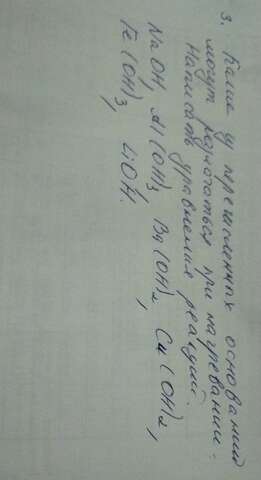 3. Какие из перечисленных оснований
могут разлагаться при нагревании.
Написать уравнения реакций.
NaOH, Al(OH)3, Ba(OH)2, Cu(OH)2,
Fe(OH)3, LiOH.